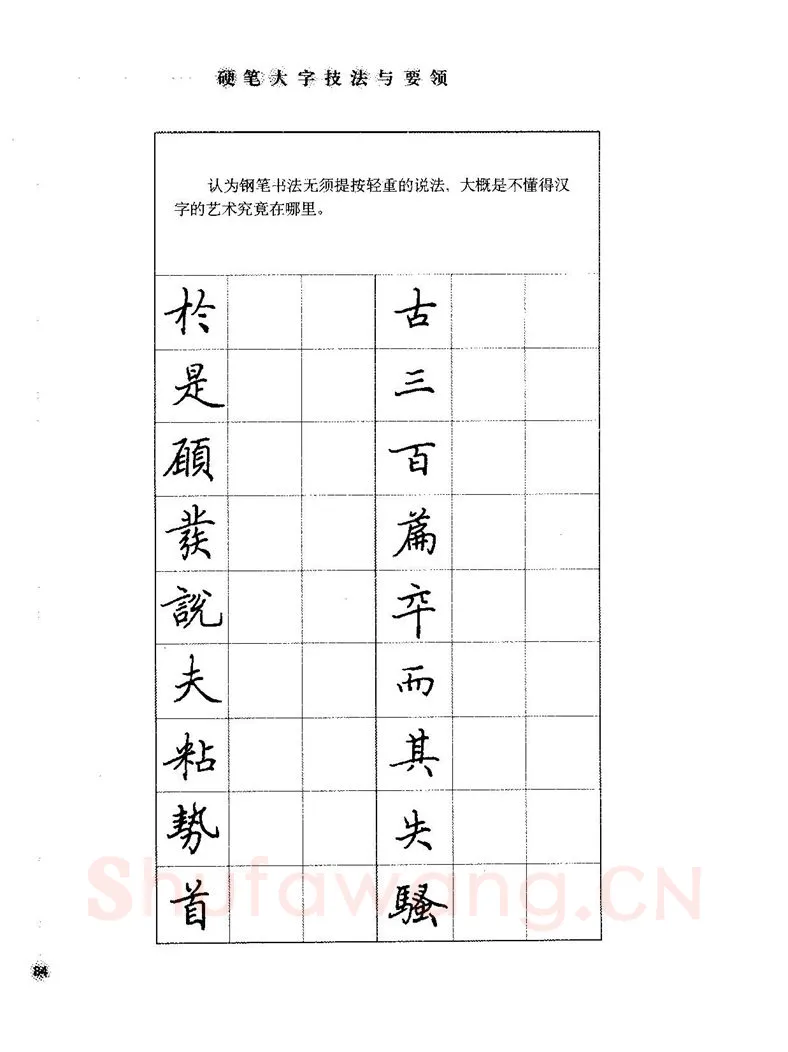 硬笔大字技法与要领
认为钢笔书法无须提按轻重的说法，大概是不懂得汉
字的艺术究竟在哪里。
於 古
是 三
頋 百
發 篇
說 卒
夫 而
粘 其
勢 失
首 騷
Shufawang.CN
84